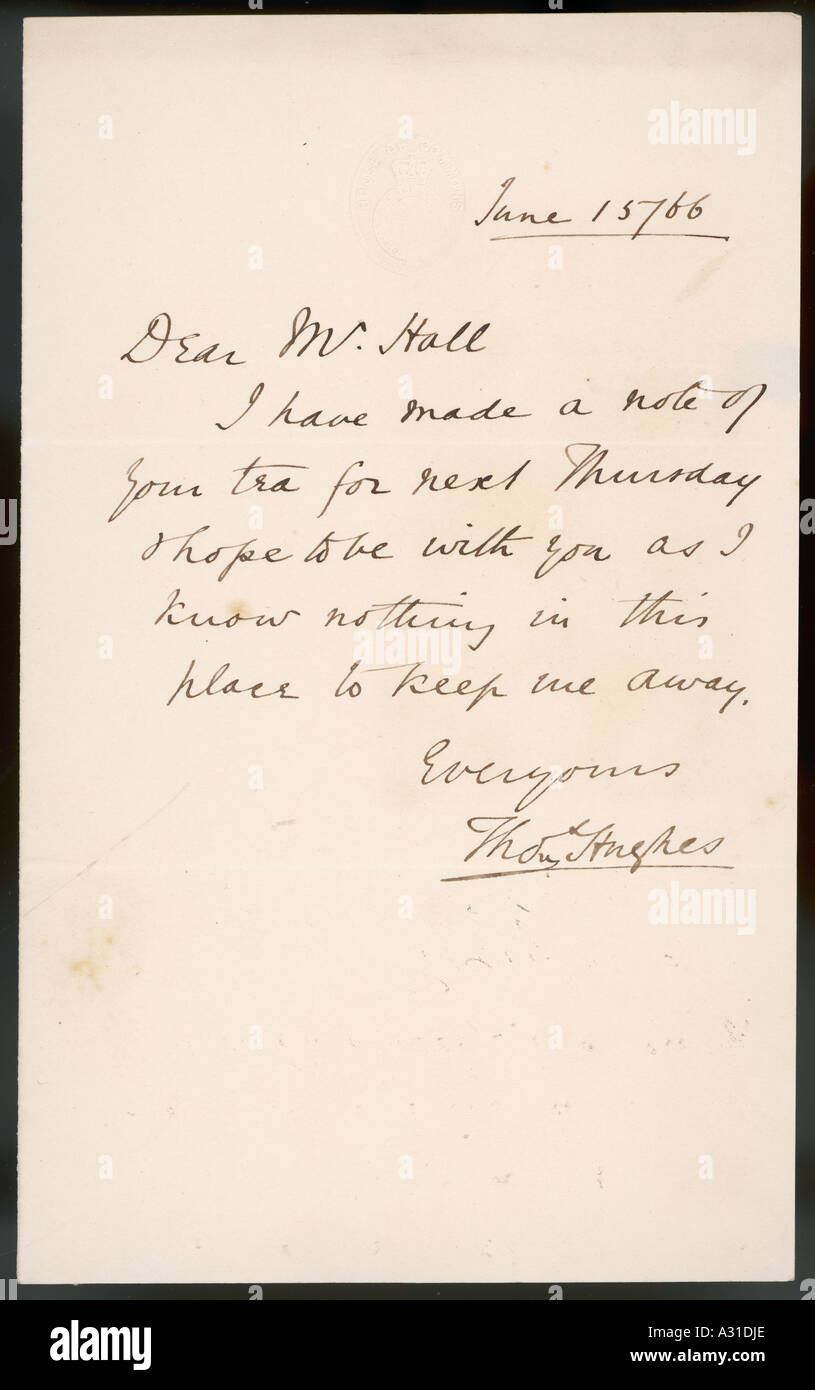 HOUSE OF COMMONS
June 15/66
Dear Mr. Hall
I have made a note of
your tea for next Thursday
& hope to be with you as I
know nothing in this
place to keep me away.
Ever yours
Thos Hughes
alamy
Image ID: A31DJE
www.alamy.com